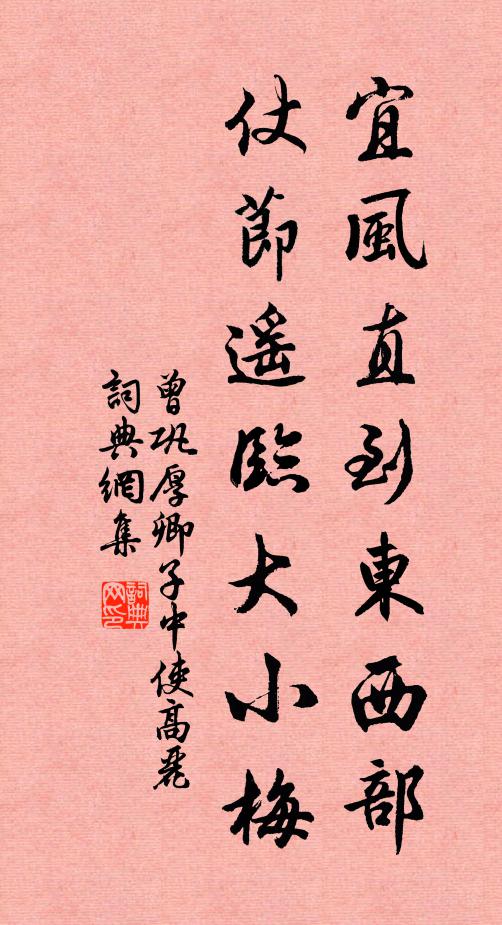 宜風直到東西部
仗節遥臨大小梅
曾巩厚卿子中使高麗
詞典網集
詞典网印